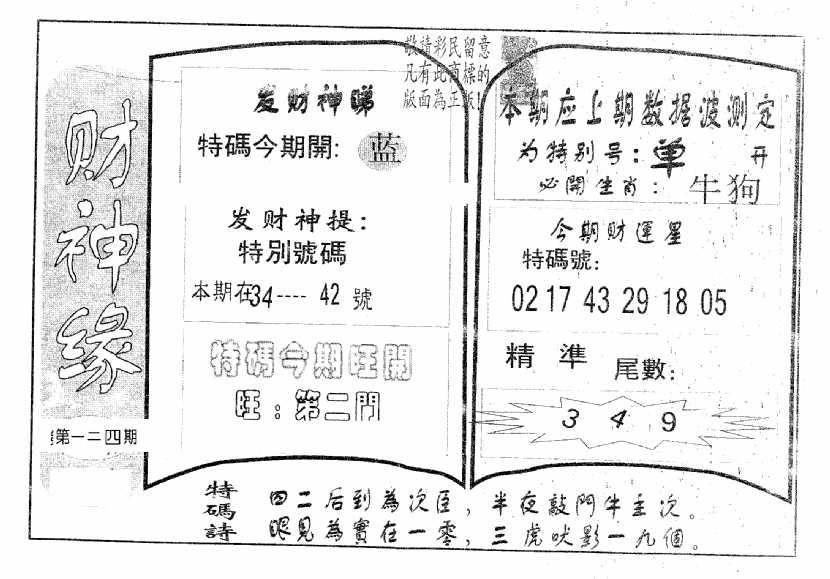 财神缘
第一二四期
敬請彩民留意
凡有此商標的
版面為正版!
发财神睇
特碼今期開: 蓝
发财神提:
特別號碼
本期在34---- 42 號
特碼今期旺開
旺:第二門
本期应上期数据波测定
为特别号:单 开
必開生肖: 牛狗
今期财運星
特碼號:
02 17 43 29 18 05
精 準 尾數:
3 4 9
特碼詩
四二后到為次臣,半夜敲門牛主次。
眼見為實在一零,三虎吠影一九個。